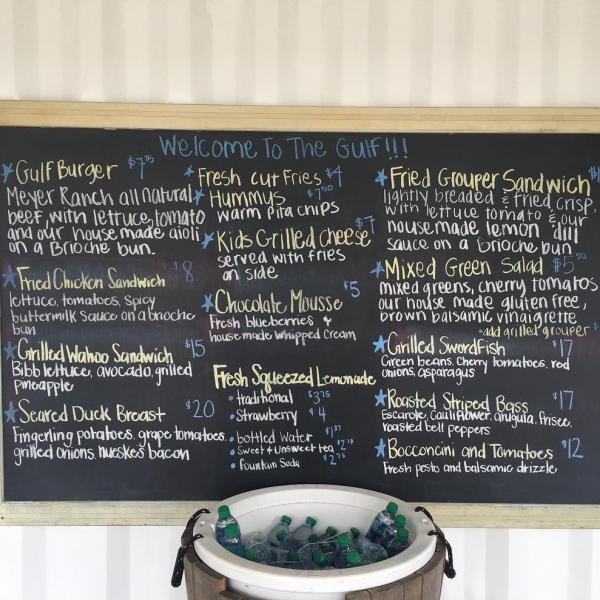 Welcome To The Gulf!!!
Gulf Burger $7.75
Meyer Ranch all natural
beef, with lettuce, tomato
and our house made aioli
on a Brioche bun.
Fried Chicken Sandwich $8
lettuce, tomatoes, spicy
buttermilk sauce on a brioche
bun
Grilled Wahoo Sandwich $15
Bibb lettuce, avocado, grilled
pineapple
Seared Duck Breast $20
Fingerling potatoes, grape tomatoes,
grilled onions, nueskes bacon
Fresh cut Fries $4
Hummus $7.50
warm pita chips
Kids Grilled Cheese $7
served with fries
on side
Chocolate Mousse $5
Fresh blueberries &
house made whipped cream
Fresh Squeezed Lemonade
• traditional $3.75
• Strawberry $4
• bottled Water
• Sweet & Unsweet tea $2.75
• fountain Soda $2.75
Fried Grouper Sandwich
lightly breaded & fried crisp,
with lettuce tomato & our
housemade lemon dill
sauce on a brioche bun
Mixed Green Salad
mixed greens, cherry tomatos
our house made gluten free,
brown balsamic vinaigrette
• add grilled grouper $
Grilled Swordfish $17
Green beans, Cherry tomatoes, red
onions, asparagus
Roasted Striped Bass $17
Escarole, Cauliflower, arugula, frisee,
roasted bell peppers
Bocconcini and Tomatoes $12
Fresh pesto and balsamic drizzle